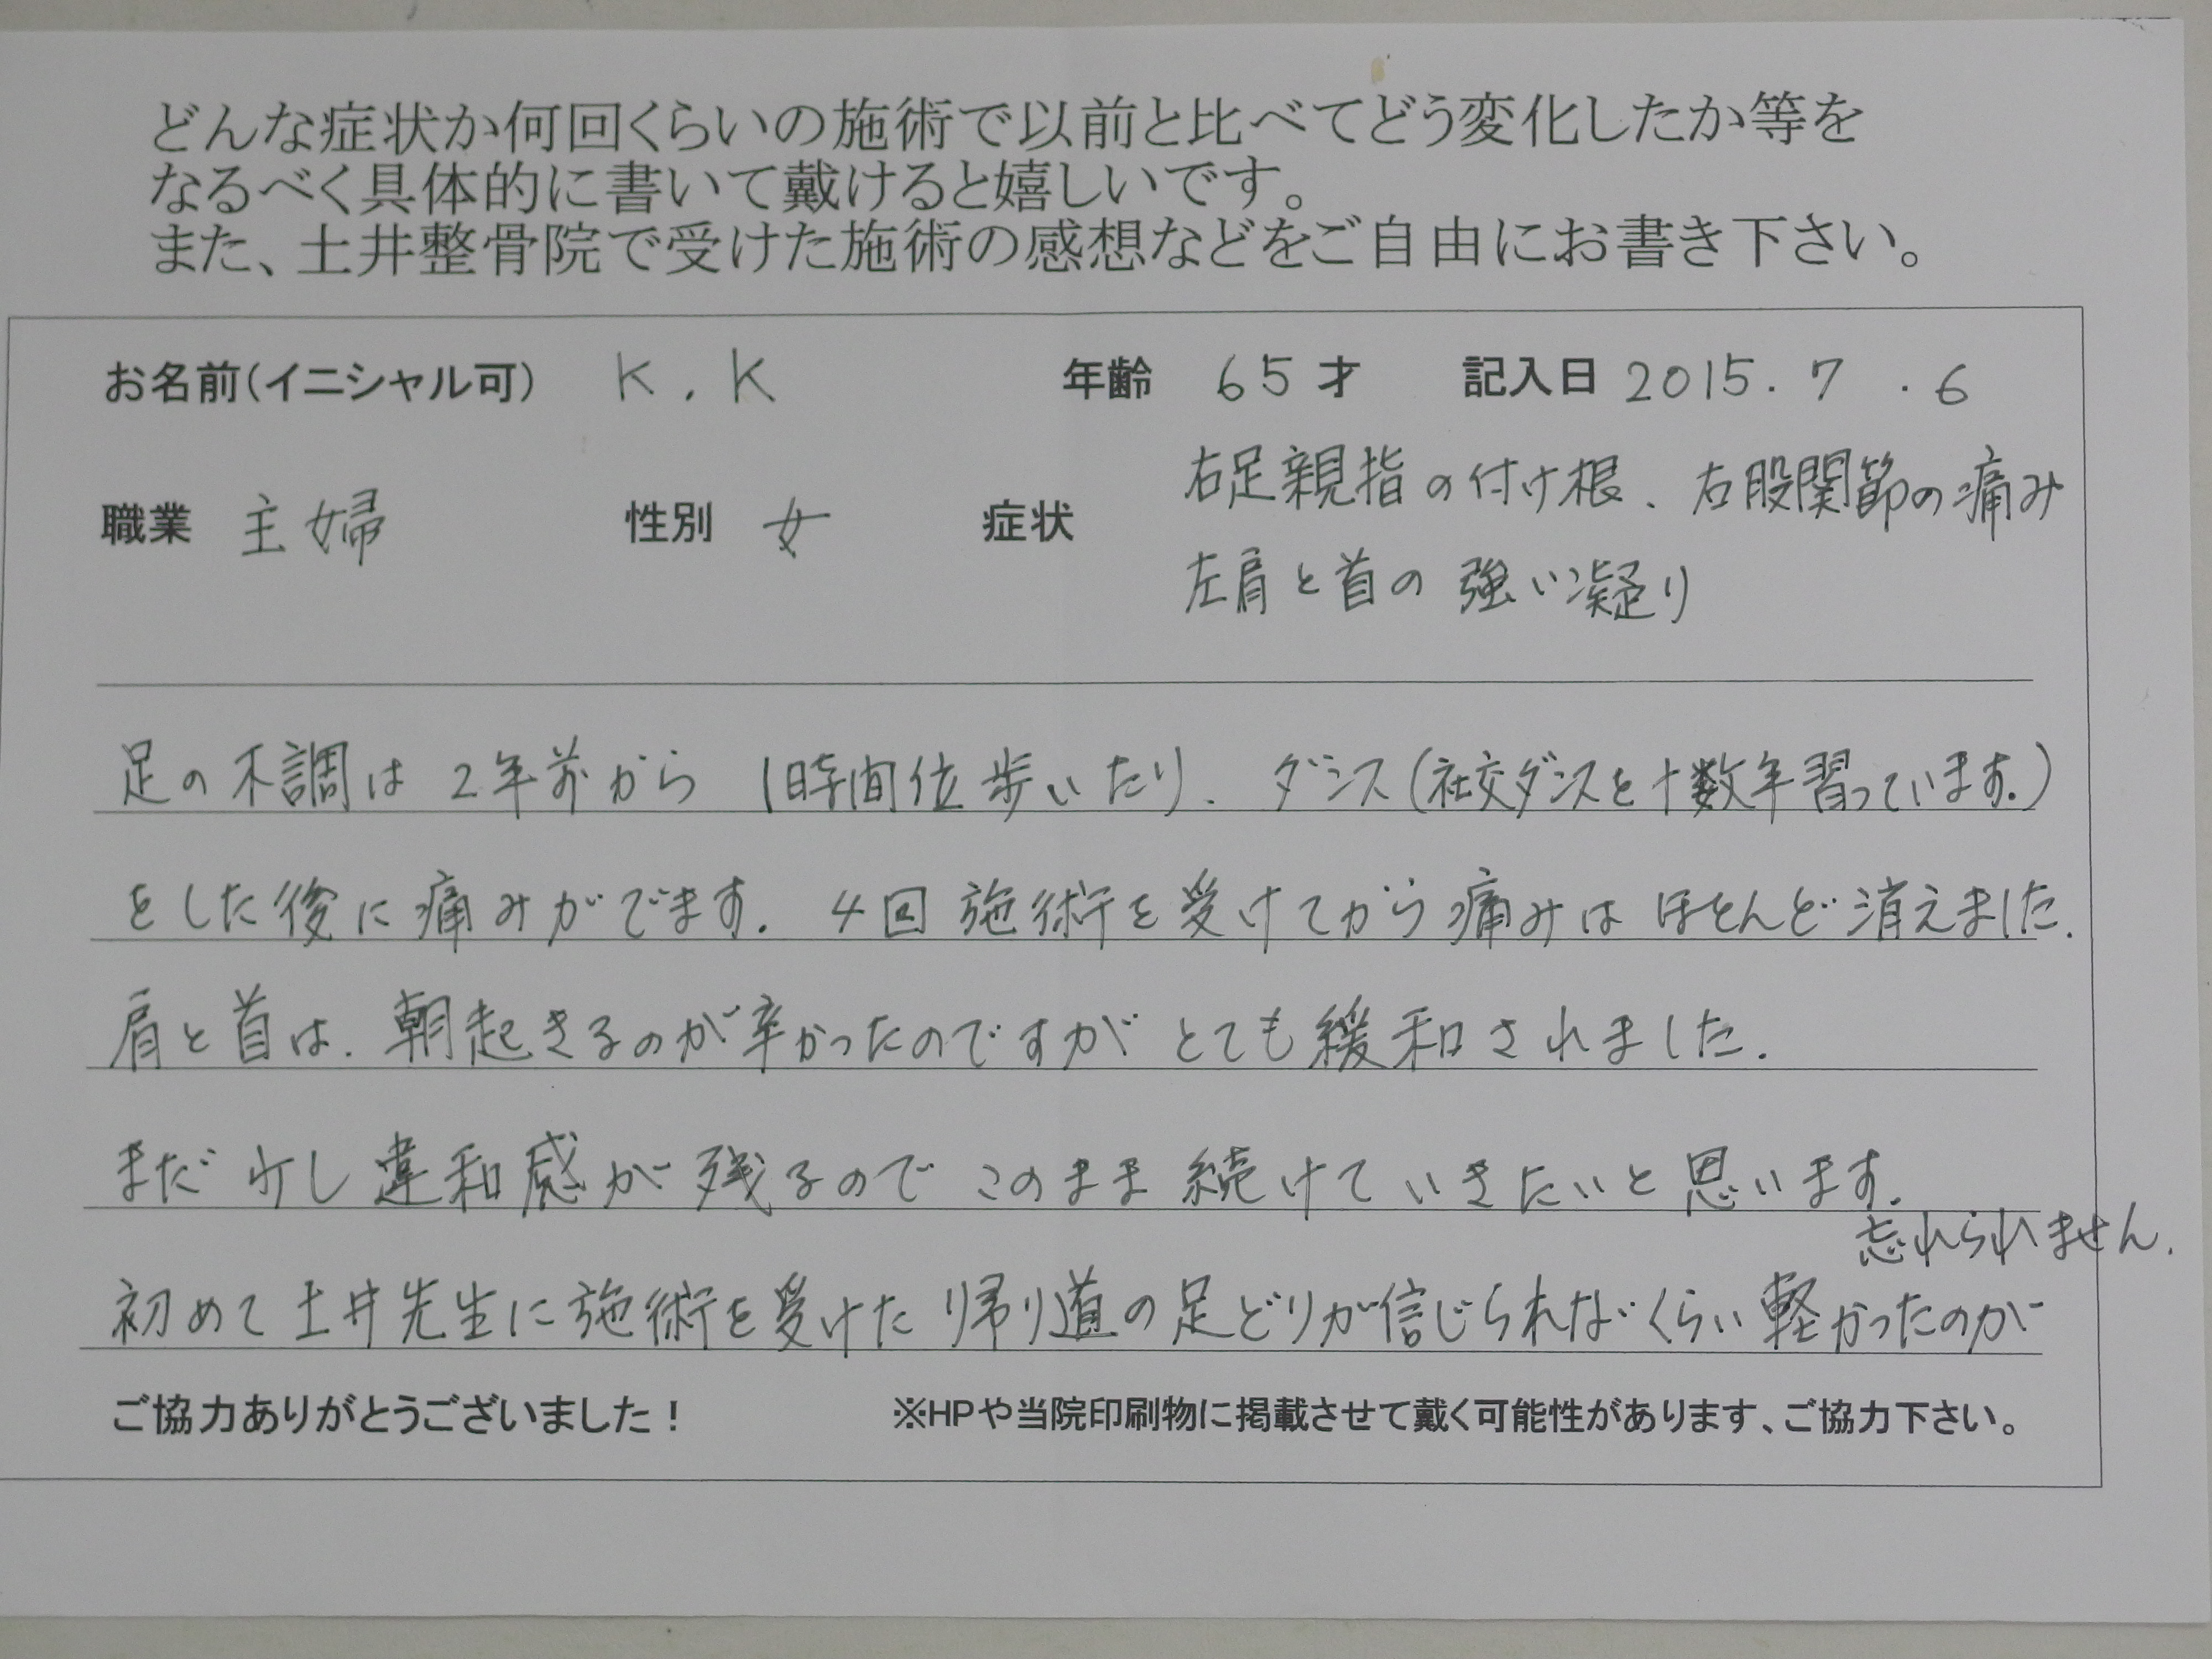 どんな症状か何回くらいの施術で以前と比べてどう変化したか等を
なるべく具体的に書いて戴けると嬉しいです。
また、土井整骨院で受けた施術の感想などをご自由にお書き下さい。
お名前(イニシャル可) K.K 年齢 65才 記入日 2015.7.6
職業 主婦 性別 女 症状 右足親指の付け根、右股関節の痛み
左肩と首の強い凝り
足の不調は2年前から1時間位歩いたり、ダンス(社交ダンスを十数年習っています。)
をした後に痛みがでます。4回施術を受けてから痛みはほとんど消えました。
肩と首は、朝起きるのが辛かったのですがとても緩和されました。
まだ少し違和感が残るのでこのまま続けていきたいと思います。
初めて土井先生に施術を受けた帰り道の足どりが信じられないくらい軽かったのが
忘れられません。
ご協力ありがとうございました! ※HPや当院印刷物に掲載させて戴く可能性があります、ご協力下さい。